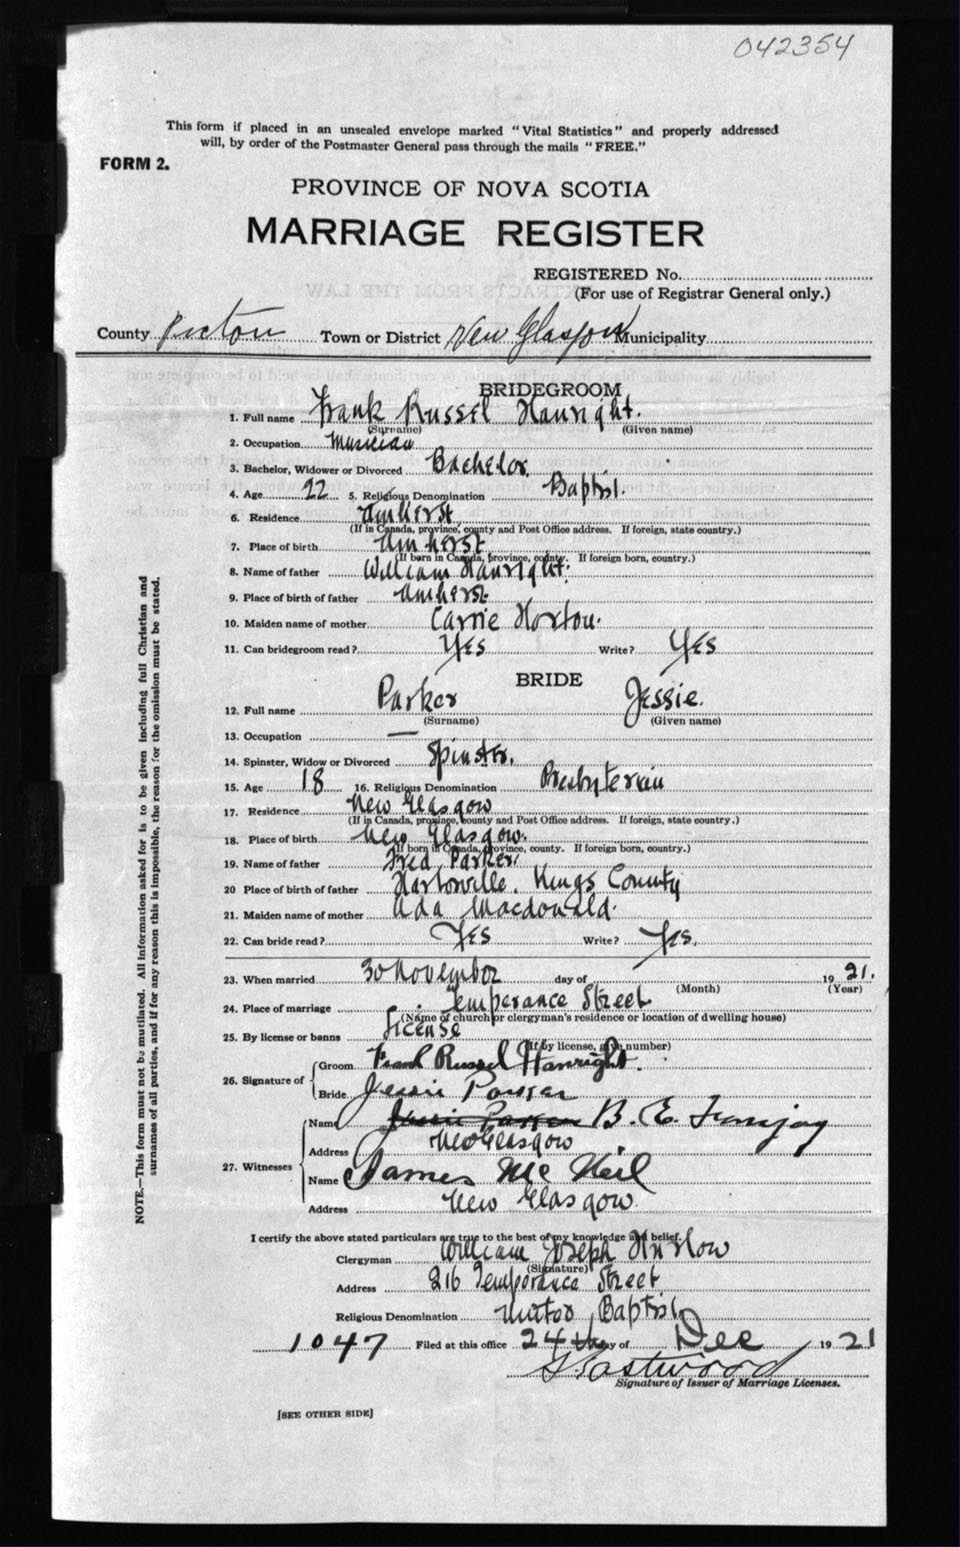 042354
This form if placed in an unsealed envelope marked "Vital Statistics" and properly addressed
will, by order of the Postmaster General pass through the mails "FREE."
FORM 2.
PROVINCE OF NOVA SCOTIA
MARRIAGE REGISTER
REGISTERED No.
(For use of Registrar General only.)
County Pictou Town or District New Glasgow Municipality
BRIDEGROOM
1. Full name Frank Russel Hanright.
(Surname) (Given name)
2. Occupation Musician
3. Bachelor, Widower or Divorced Bachelor
4. Age 22 5. Religious Denomination Baptist.
6. Residence Amherst
(If in Canada, province, county and Post Office address. If foreign, state country.)
7. Place of birth Amherst
(If born in Canada, province, county. If foreign born, country.)
8. Name of father William Hanright.
9. Place of birth of father Amherst
10. Maiden name of mother Carrie Horton.
11. Can bridegroom read? Yes Write? Yes
BRIDE
12. Full name Parker Jessie.
(Surname) (Given name)
13. Occupation —
14. Spinster, Widow or Divorced Spinster.
15. Age 18 16. Religious Denomination Presbyterian
17. Residence New Glasgow
(If in Canada, province, county and Post Office address. If foreign, state country.)
18. Place of birth New Glasgow.
(If born in Canada, province, county. If foreign born, country.)
19. Name of father Fred Parker
20 Place of birth of father Kings County
21. Maiden name of mother Ada Macdonald.
22. Can bride read? Yes Write? Yes.
23. When married 30 November day of 1921.
(Month) (Year)
24. Place of marriage Temperance Street
(Name of church or clergyman's residence or location of dwelling house)
25. By license or banns License
(If by license, give number)
26. Signature of Groom Frank Russel Hanright.
Bride Jessie Parker
27. Witnesses Name Jessie Parker B. E.
Address New Glasgow
Name James McNeil
Address New Glasgow.
I certify the above stated particulars are true to the best of my knowledge and belief.
Clergyman William Joseph
(Signature)
Address 216 Temperance Street
Religious Denomination Baptist
1047 Filed at this office 24th day of Dec 1921
Eastwood
Signature of Issuer of Marriage Licenses.
[SEE OTHER SIDE]
NOTE.—This form must not be mutilated. All information asked for is to be given including full Christian and
surnames of all parties, and if for any reason this is impossible, the reason for the omission must be stated.